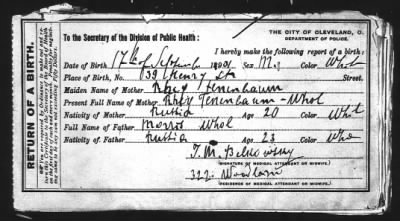 THE CITY OF CLEVELAND, O.
DEPARTMENT OF POLICE.
To the Secretary of the Division of Public Health:
I hereby make the following report of a birth:
Date of Birth 17th of September Sex M. Color Whit
Place of Birth, No. 39 Henry St Street.
Maiden Name of Mother Rosy Tenenbaum
Present Full Name of Mother Rosy Tenenbaum-Whol
Nativity of Mother Russia Age 20 Color Whit
Full Name of Father Morris Whol
Nativity of Father Russia Age 23 Color Whi
(SIGNATURE OF MEDICAL ATTENDANT OR MIDWIFE.)
322 Woodland
(RESIDENCE OF MEDICAL ATTENDANT OR MIDWIFE.)
RETURN OF A BIRTH.